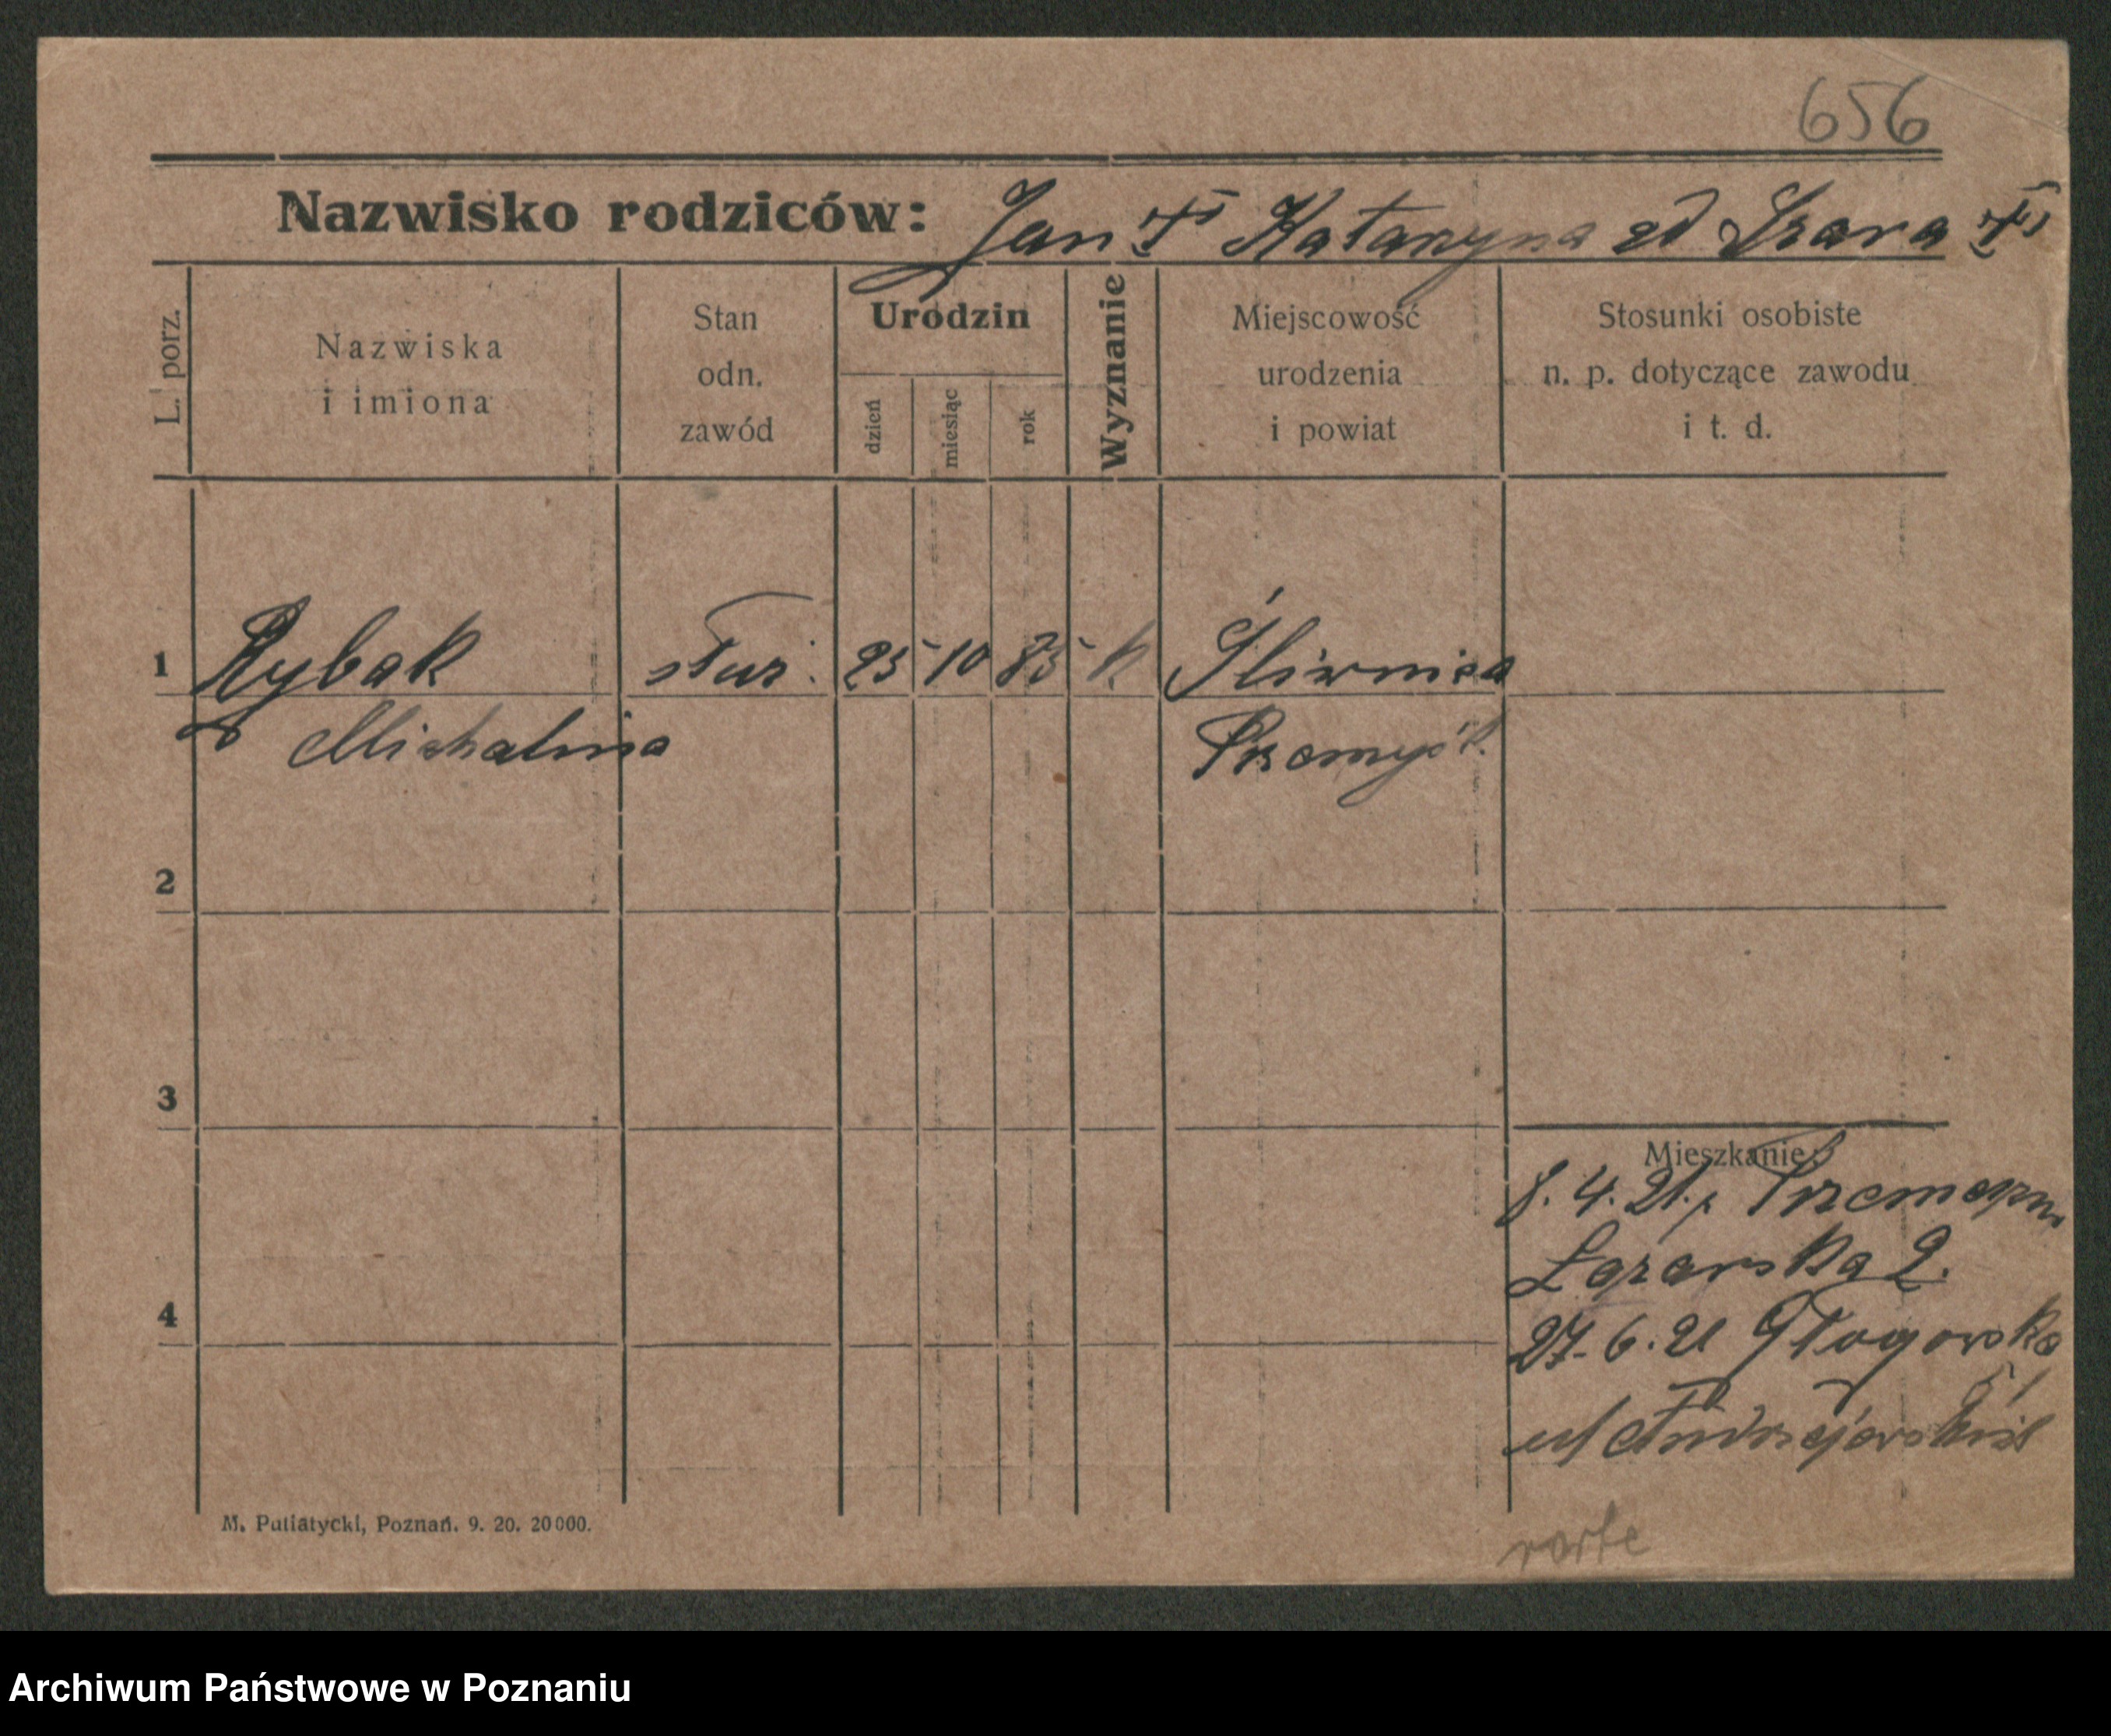 656
Nazwisko rodziców: Jan Katarzyna
L. porz.
Nazwiska
i imiona
Stan
odn.
zawód
Urodzin
dzień
miesiąc
rok
Wyznanie
Miejscowość
urodzenia
i powiat
Stosunki osobiste
n. p. dotyczące zawodu
i t. d.
1 Rybak służ. 25 10 85 k Śliwnica
Michalina Przemyśl.
2
3
Mieszkanie:
8. 4. 21.
Łazarska 2.
4
27. 6. 21 Głogowska
M. Putiatycki, Poznań. 9. 20. 20000.
Archiwum Państwowe w Poznaniu